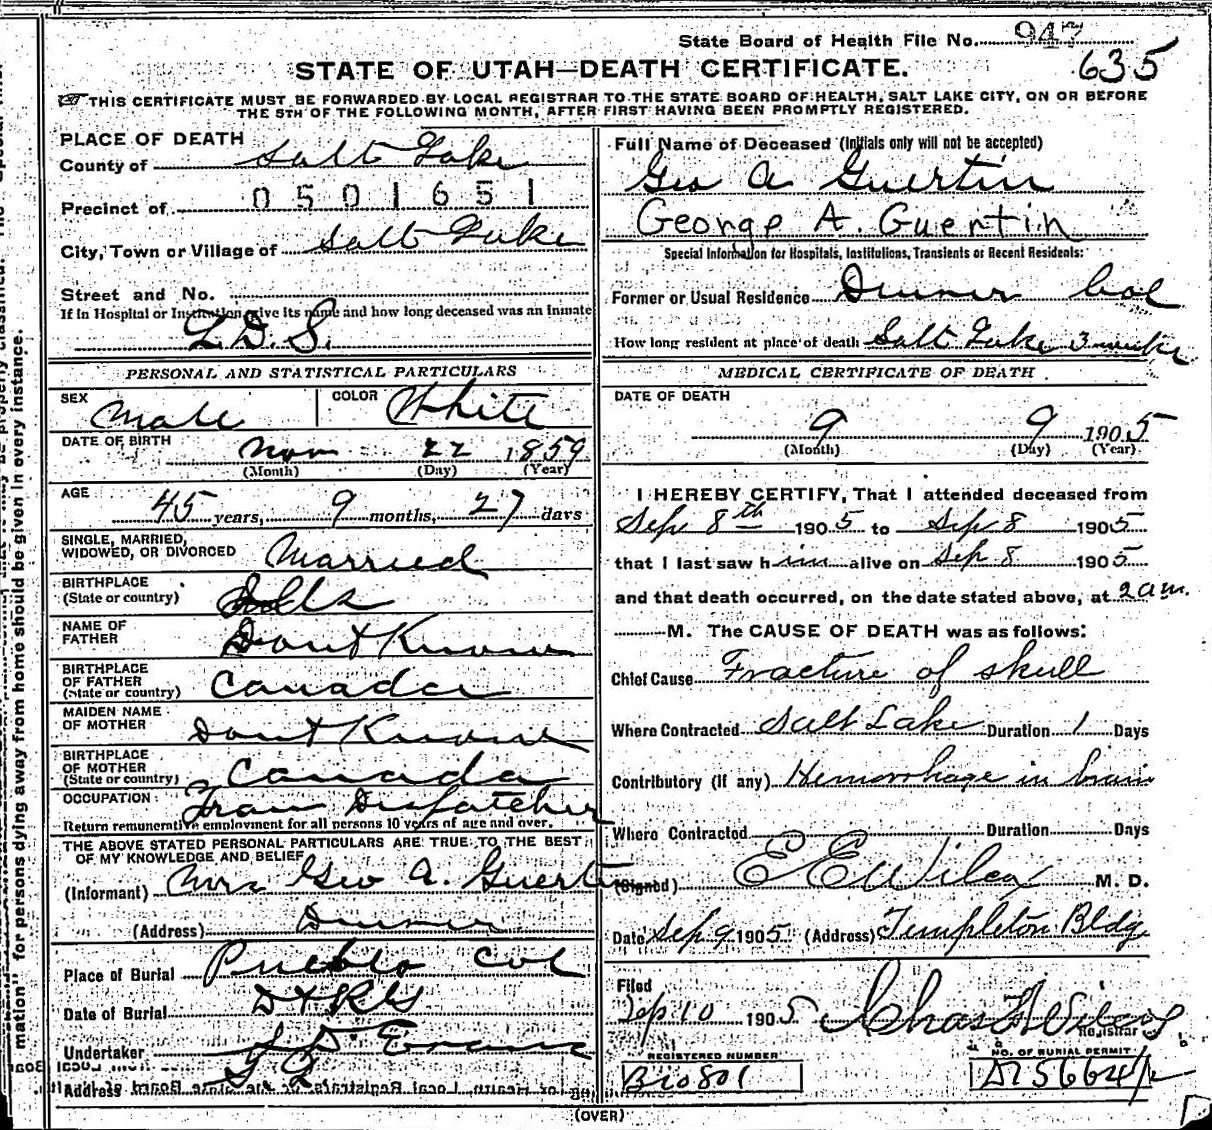 State Board of Health File No. 947
635
STATE OF UTAH—DEATH CERTIFICATE.
THIS CERTIFICATE MUST BE FORWARDED BY LOCAL REGISTRAR TO THE STATE BOARD OF HEALTH, SALT LAKE CITY, ON OR BEFORE
THE 5TH OF THE FOLLOWING MONTH, AFTER FIRST HAVING BEEN PROMPTLY REGISTERED.
PLACE OF DEATH
County of Salt Lake
Precinct of 0501651
City, Town or Village of Salt Lake
Street and No.
If in Hospital or Institution give its name and how long deceased was an Inmate
L.D.S.
Full Name of Deceased (Initials only will not be accepted)
Geo A Guertin
George A. Guertin
Special Information for Hospitals, Institutions, Transients or Recent Residents:
Former or Usual Residence Denver Col
How long resident at place of death Salt Lake 3 weeks
PERSONAL AND STATISTICAL PARTICULARS
SEX Male COLOR White
DATE OF BIRTH Nov 22 1859
(Month) (Day) (Year)
AGE 45 years, 9 months, 27 days
SINGLE, MARRIED,
WIDOWED, OR DIVORCED Married
BIRTHPLACE
(State or country) Ills
NAME OF
FATHER Dont Know
BIRTHPLACE
OF FATHER
(State or country) Canada
MAIDEN NAME
OF MOTHER Dont Know
BIRTHPLACE
OF MOTHER
(State or country) Canada
OCCUPATION Train Dispatcher
Return remunerative employment for all persons 10 years of age and over.
THE ABOVE STATED PERSONAL PARTICULARS ARE TRUE TO THE BEST
OF MY KNOWLEDGE AND BELIEF
(Informant) Mrs Geo A. Guertin
(Address) Denver
Place of Burial Pueblo Col
Date of Burial
Undertaker Evans
Address
MEDICAL CERTIFICATE OF DEATH
DATE OF DEATH
9 9 1905
(Month) (Day) (Year)
I HEREBY CERTIFY, That I attended deceased from
Sep 8th 1905 to Sep 8 1905
that I last saw him alive on Sep 8 1905
and that death occurred, on the date stated above, at 2 am.
M. The CAUSE OF DEATH was as follows:
Chief Cause Fracture of skull
Where Contracted Salt Lake Duration 1 Days
Contributory (if any) Hemorrhage in brain
Where Contracted Duration Days
(Signed) E E Wilcox M. D.
Date Sep 9 1905 (Address) Templeton Bldg
Filed
Sep 10 1905 Chas
Registrar
REGISTERED NUMBER
B10801
NO. OF BURIAL PERMIT
(OVER)
mation" for persons dying away from home should be given in every instance.